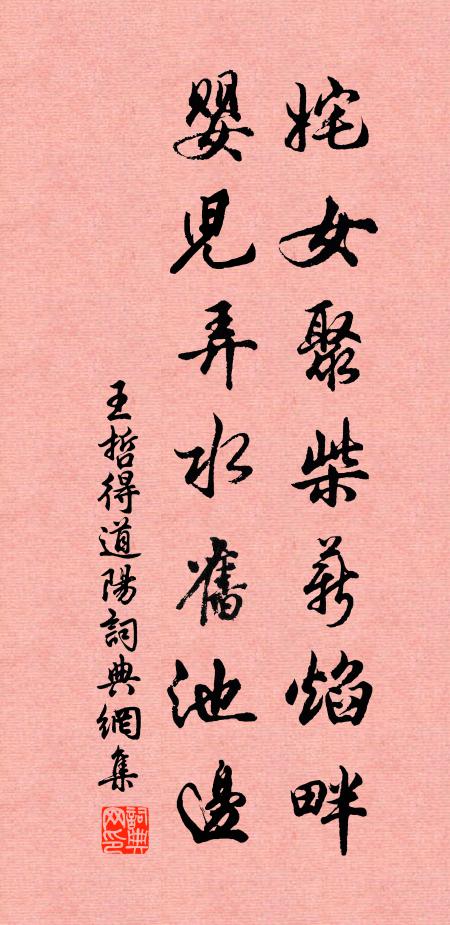 姹女聚柴薪焰畔
嬰兒弄水舊池邊
王哲得道陽詞典網集
詞典网印